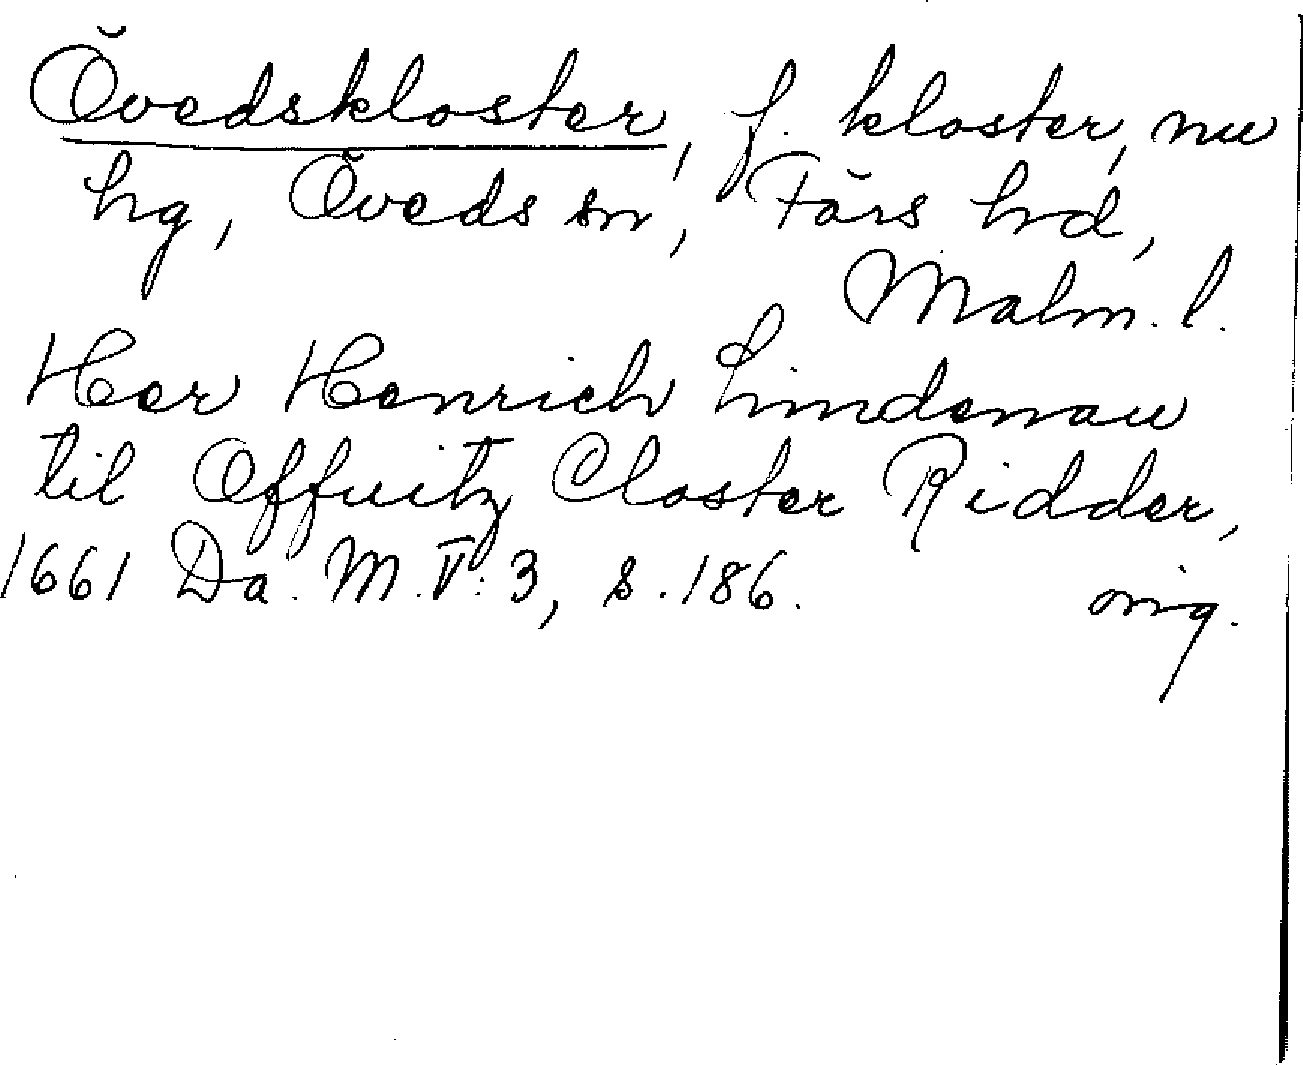 Övedskloster, f. kloster, nu
hg, Öveds sn, Färs hd,
Malm. l.
Her Henrich Lindenau
til Offuitz Closter Ridder,
1661 Da. M. V: 3, s. 186.
orig.